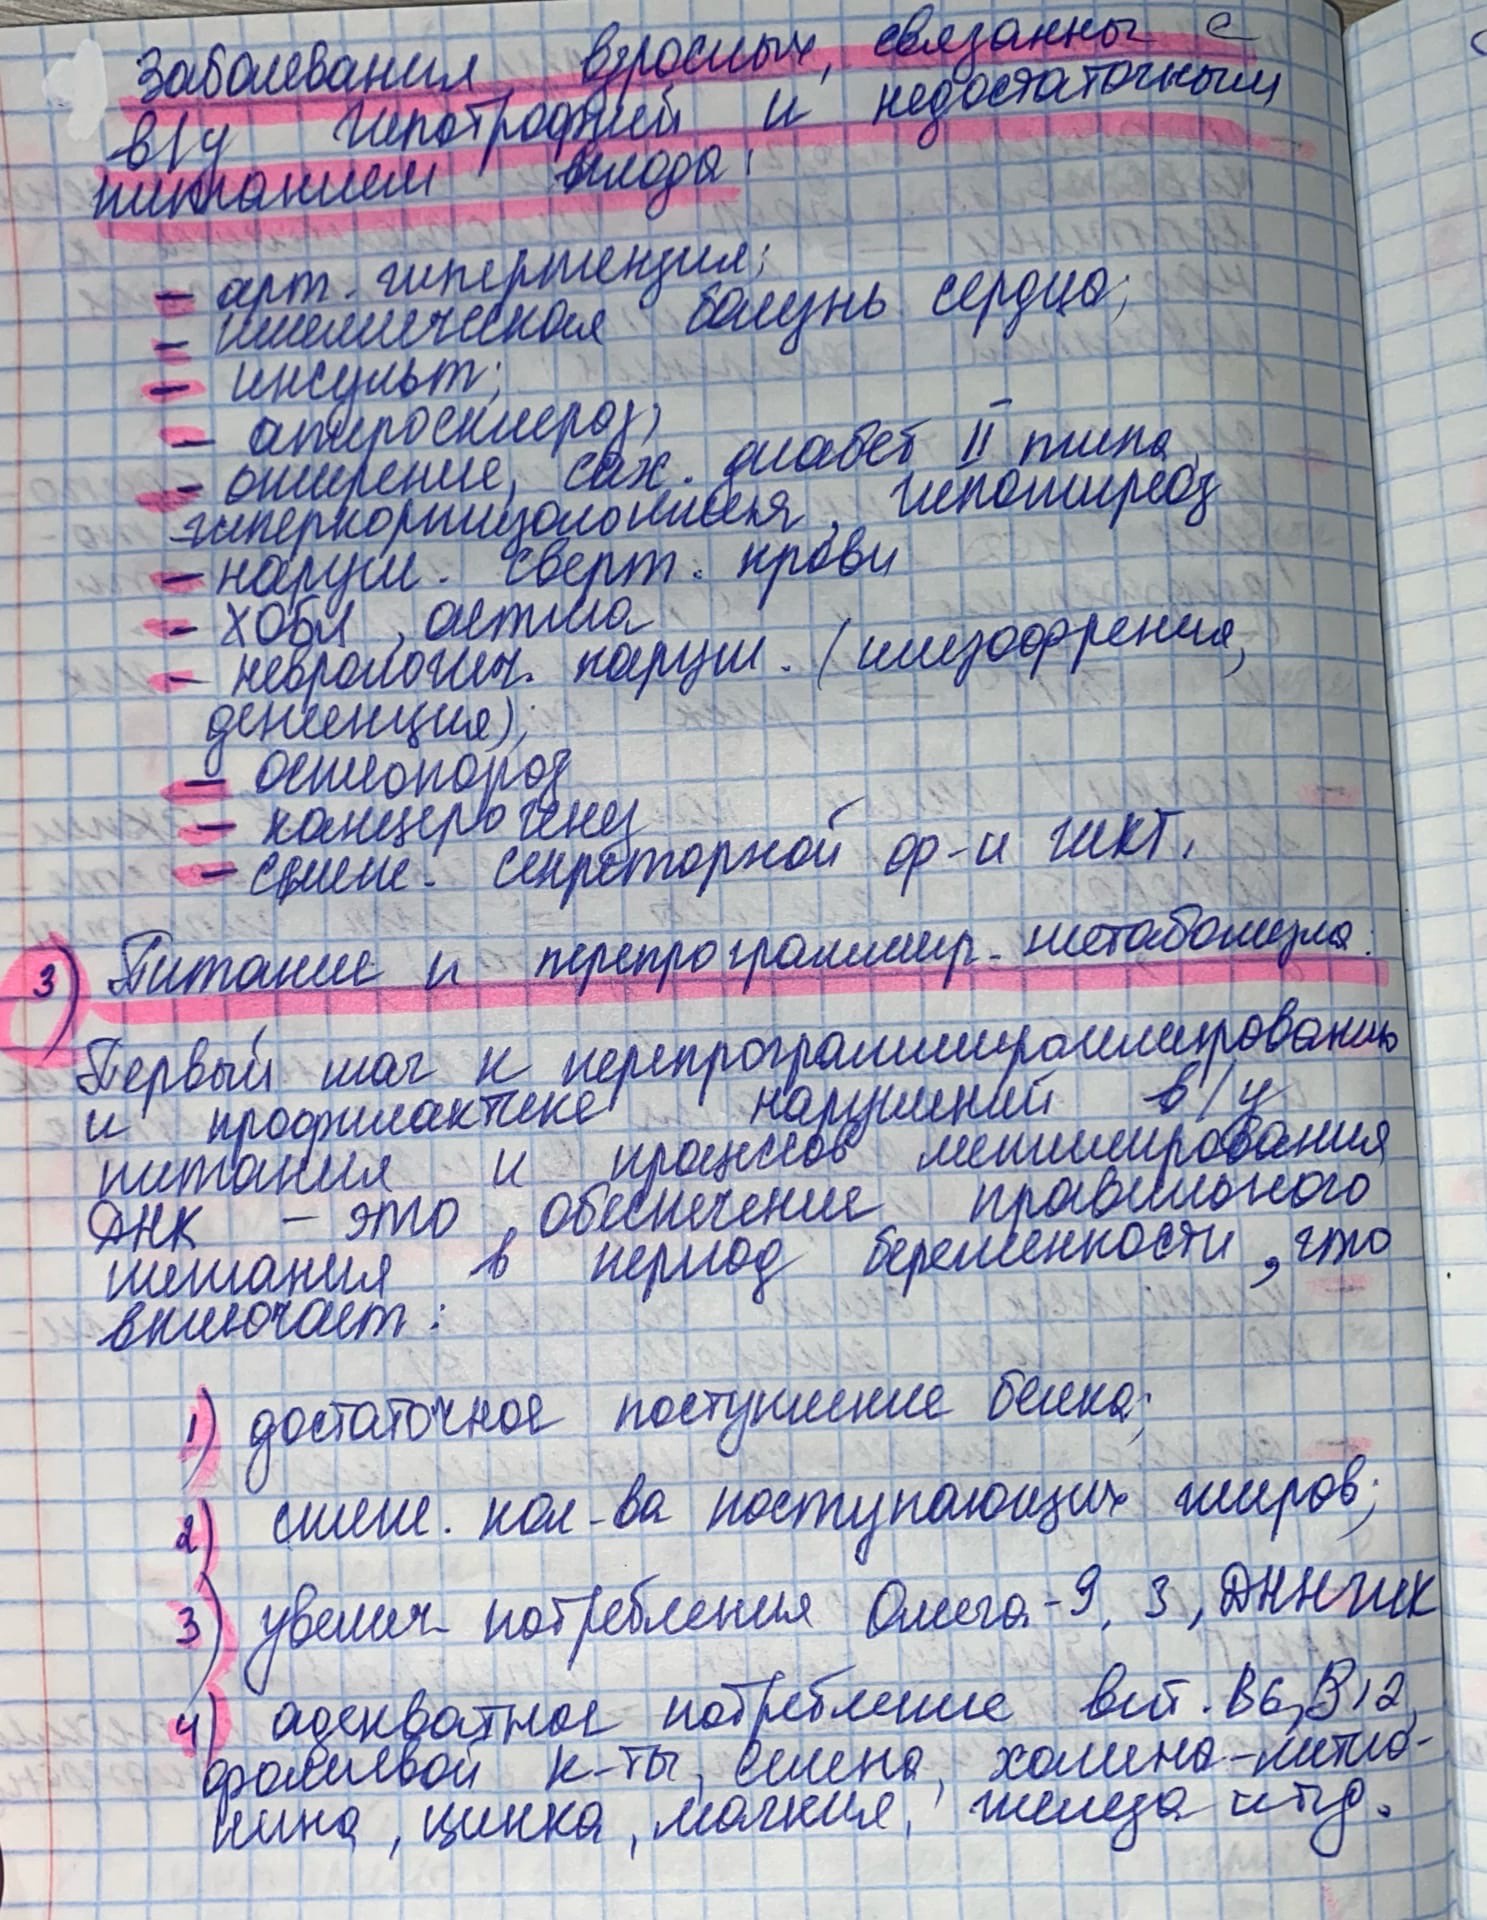 Заболевания взрослых, связанны с
в/у гипотрофией и недостаточным
питанием плода:
- арт. гипертензия;
- ишемическая болезнь сердца;
- инсульт;
- атеросклероз,
- ожирение, сах. диабет II типа,
гиперкортизолемия, гипотиреоз
- наруш. сверт. крови
- ХОБЛ, астма
- неврологич. наруш. (шизофрения,
деменция);
- остеопороз
- канцерогенез
- сниж. секреторной ф-и ЖКТ.
3) Питание и перепрограммир. метаболизма:
Первый шаг к перепрограммированию
и профилактике нарушений в/у
питания и процессов метилирования
ДНК - это обеспечение правильного
питания в период беременности, что
включает:
1) достаточное поступление белка;
2) сниж. кол-ва поступающих жиров;
3) увелич. потребления Омега-9, 3, ДННЖК
4) адекватное потребление вит. В6, В12,
фолиевой к-ты, селена, холина-метио-
нина, цинка, магния, железа и тд.